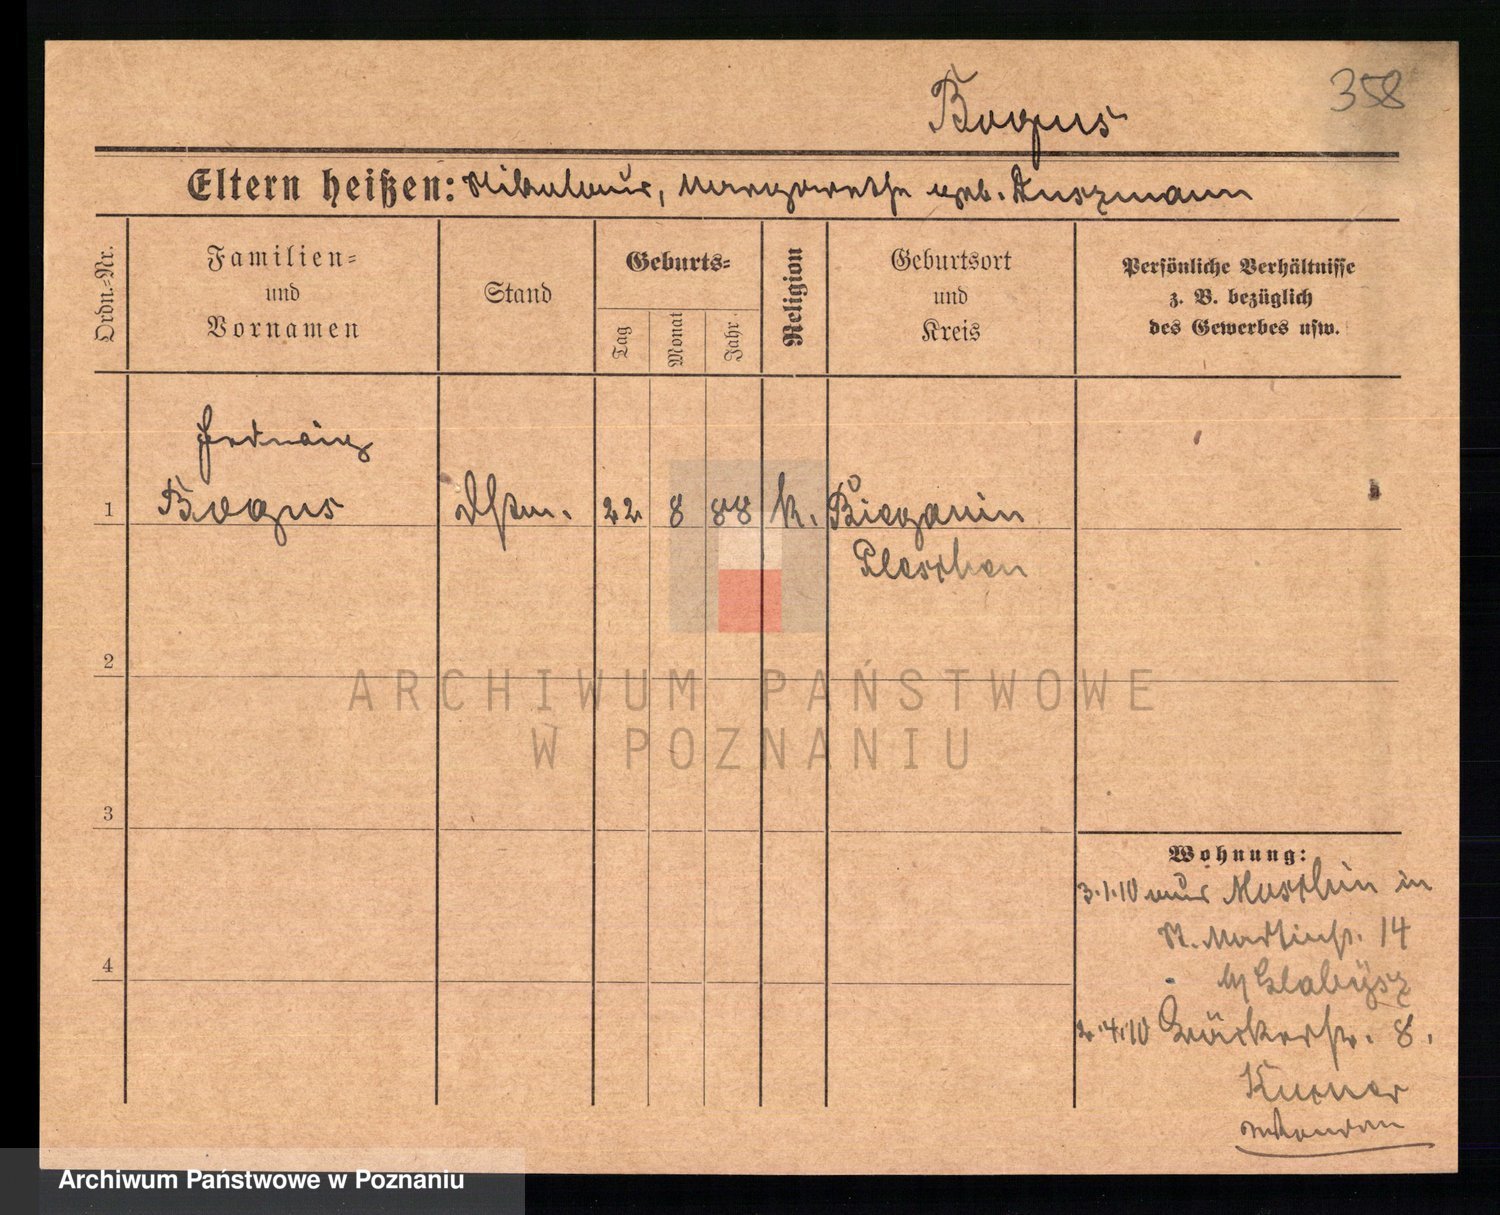 358
Bogus
Eltern heißen: Nikolaus, Margarethe geb. Kuszmann
Ordn.-Nr.
Familien-
und
Vornamen
Stand
Geburts-
Tag
Monat
Jahr.
Religion
Geburtsort
und
Kreis
Persönliche Verhältnisse
z. B. bezüglich
des Gewerbes usw.
1
Bogus
22 8 88 k. Bieganin
Pleschen
2
ARCHIWUM PAŃSTWOWE
W POZNANIU
3
Wohnung:
3.1.10 aus in
St. Martinstr. 14
4
2.4.10 8.
Archiwum Państwowe w Poznaniu